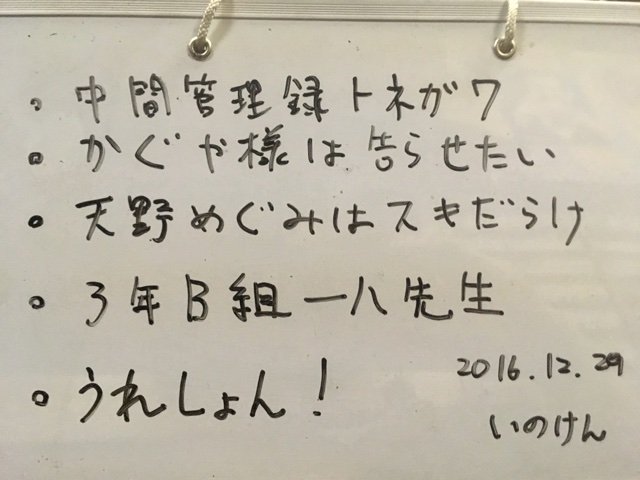 。中間管理録トネガワ
。かぐや様は告らせたい
。天野めぐみはスキだらけ
。3年B組一八先生
。うれしょん!
2016.12.29
いのけん